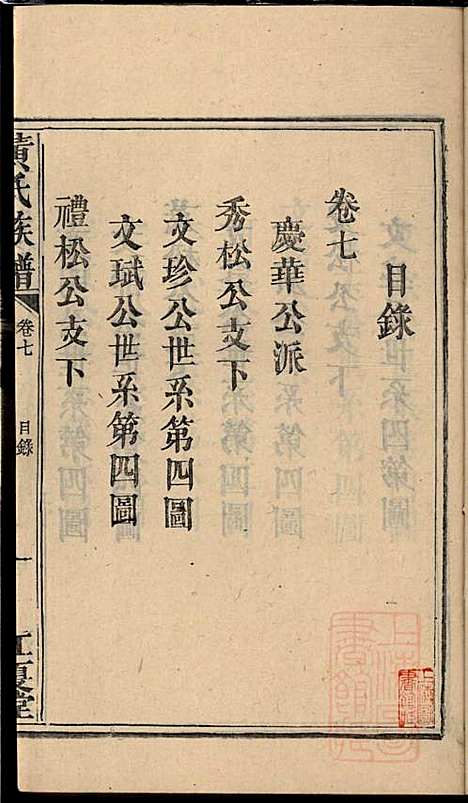 目錄
卷七
慶華公派
秀松公支下
文珍公世系第四圖
文斌公世系第四圖
禮松公支下
黃氏族譜
卷七
目錄
一
江夏堂